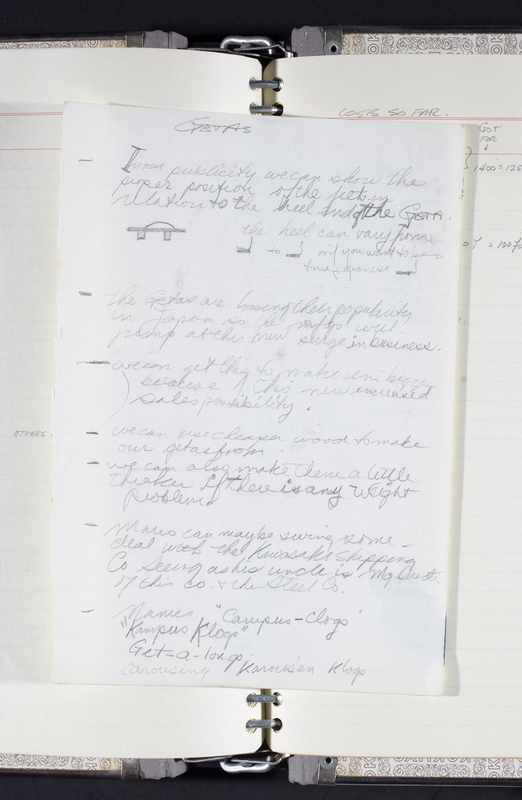 COSTS SO FAR.
GOT
FOR
1400 = 125
= 100
OTHERS
GETAS
- In our publicity we can show the
proper position of the feet in
relation to the heel end of the GETA.
the heel can vary from
to or if you want to be a
true Japanese
- the Getas are losing their popularity
in Japan so the mfgs will
jump at this new surge in business.
- we can get this to make em
because of this new increased
sales possibility.
- we can use cheaper wood to make
our getas from
- we can also make them a little
thicker if there is any weight
problem.
- Mario can maybe swing some-
deal with the Kawasaki Shipping
Co seeing as his uncle is
of this co. & the Steel Co.
- Names "Campus-Clogs"
"Kampus Klogs"
Get-a-longs
carousing Karous'en Klogs